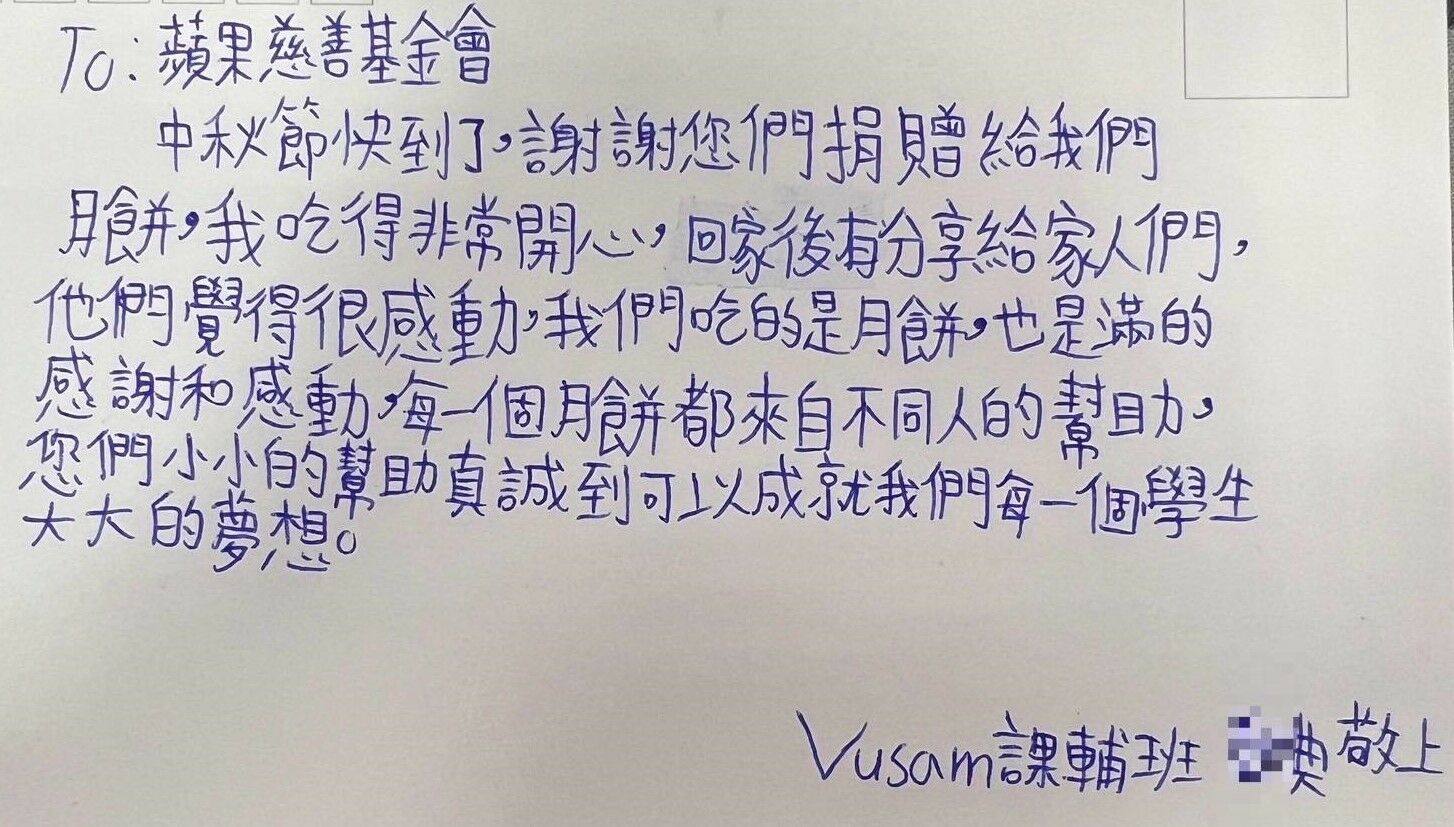 To:蘋果慈善基金會
中秋節快到了,謝謝您們捐贈給我們
月餅,我吃得非常開心,回家後有分享給家人們,
他們覺得很感動,我們吃的是月餅,也是滿的
感謝和感動,每一個月餅都來自不同人的幫助,
您們小小的幫助真誠到可以成就我們每一個學生
大大的夢想。
Vusam課輔班 典敬上